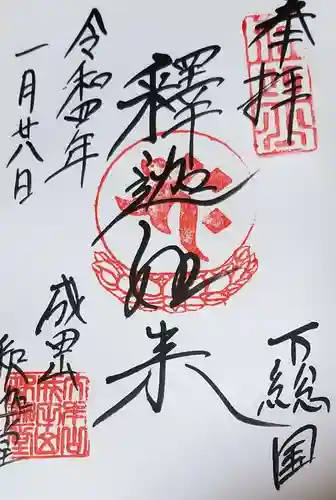 奉拝
下総国
釋迦如来
令和四年
一月廿八日
成田山
釈迦堂